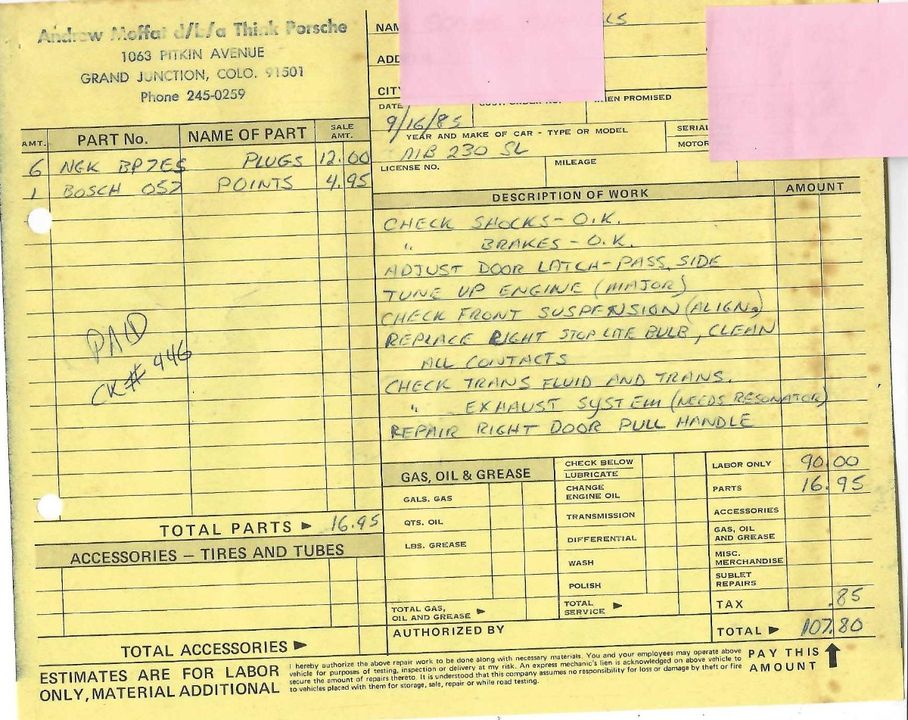 Andrew Moffat d/b/a Think Porsche
1063 PITKIN AVENUE
GRAND JUNCTION, COLO. 91501
Phone 245-0259
LS
NAM
ADD
CITY
DATE
WHEN PROMISED
9/16/85
YEAR AND MAKE OF CAR - TYPE OR MODEL
SERIAL
MOTOR
M/B 230 SL
LICENSE NO.
MILEAGE
AMT. PART No. NAME OF PART SALE AMT.
6 NGK BP7ES PLUGS 12.00
1 BOSCH 057 POINTS 4.95
PAID
CK# 446
TOTAL PARTS ► 16.95
ACCESSORIES – TIRES AND TUBES
TOTAL ACCESSORIES ►
ESTIMATES ARE FOR LABOR
ONLY, MATERIAL ADDITIONAL
DESCRIPTION OF WORK AMOUNT
CHECK SHOCKS - O.K.
" BRAKES - O.K.
ADJUST DOOR LATCH - PASS. SIDE
TUNE UP ENGINE (MAJOR)
CHECK FRONT SUSPENSION (ALIGN.)
REPLACE RIGHT STOP LITE BULB, CLEAN
ALL CONTACTS
CHECK TRANS FLUID AND TRANS.
" EXHAUST SYSTEM (NEEDS RESONATOR)
REPAIR RIGHT DOOR PULL HANDLE
GAS, OIL & GREASE
GALS. GAS
QTS. OIL
LBS. GREASE
TOTAL GAS,
OIL AND GREASE ►
CHECK BELOW
LUBRICATE
CHANGE
ENGINE OIL
TRANSMISSION
DIFFERENTIAL
WASH
POLISH
TOTAL
SERVICE ►
LABOR ONLY 90.00
PARTS 16.95
ACCESSORIES
GAS, OIL
AND GREASE
MISC.
MERCHANDISE
SUBLET
REPAIRS
TAX .85
AUTHORIZED BY
TOTAL ► 107.80
I hereby authorize the above repair work to be done along with necessary materials. You and your employees may operate above
vehicle for purposes of testing, inspection or delivery at my risk. An express mechanic's lien is acknowledged on above vehicle to
secure the amount of repairs thereto. It is understood that this company assumes no responsibility for loss or damage by theft or fire
to vehicles placed with them for storage, sale, repair or while road testing.
PAY THIS
AMOUNT